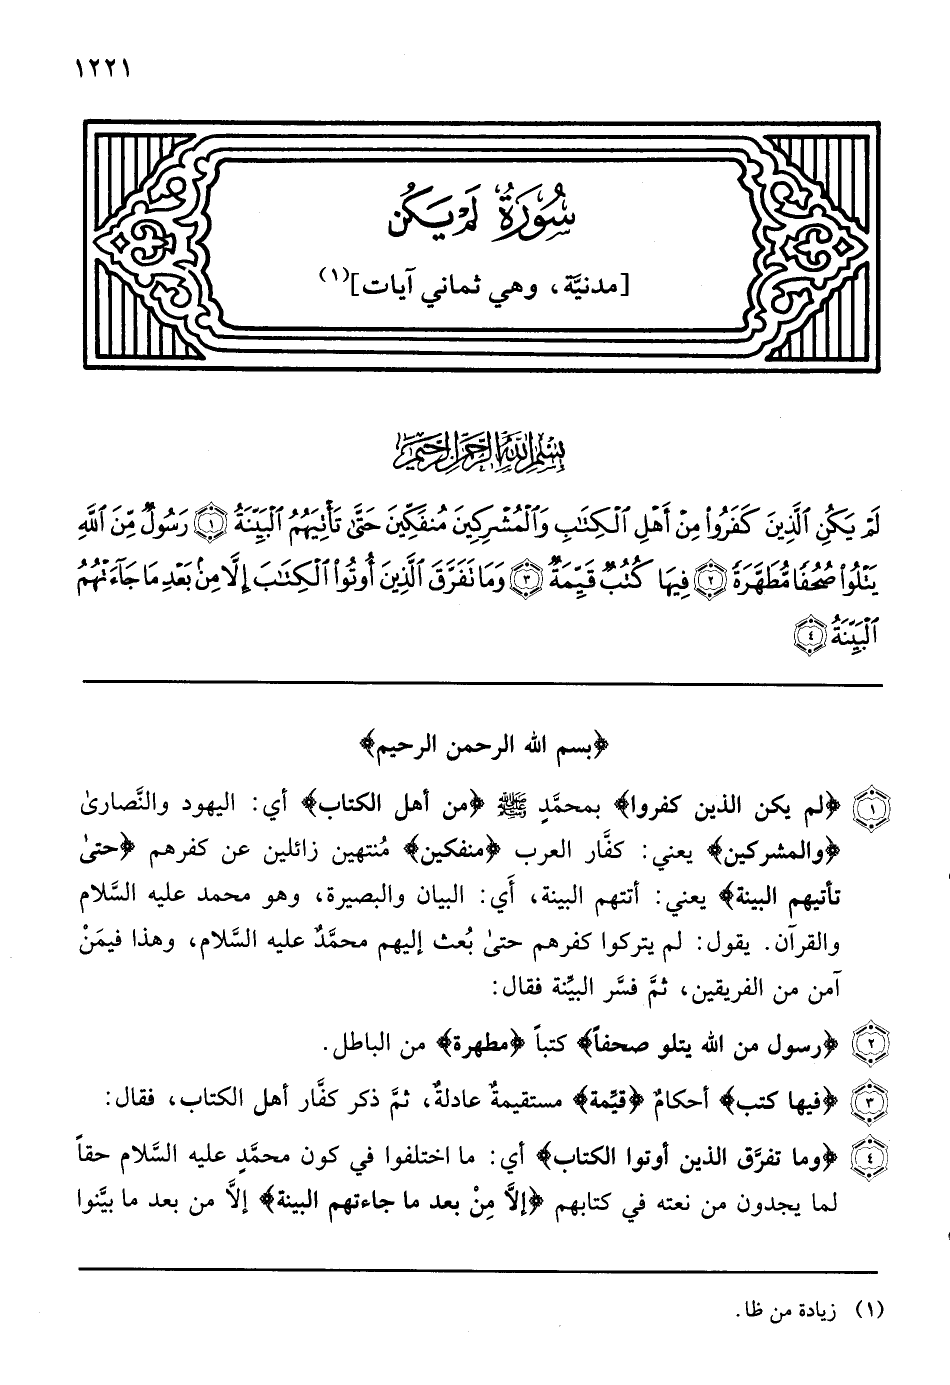 ١٢٢١
سُورَةُ لَمْ يَكُن
[مدنيَّة، وهي ثماني آيات]⁽١⁾
بِسْمِ اللَّهِ الرَّحْمَٰنِ الرَّحِيمِ
لَمْ يَكُنِ ٱلَّذِينَ كَفَرُوا۟ مِنْ أَهْلِ ٱلْكِتَٰبِ وَٱلْمُشْرِكِينَ مُنفَكِّينَ حَتَّىٰ تَأْتِيَهُمُ ٱلْبَيِّنَةُ ١ رَسُولٌ مِّنَ ٱللَّهِ
يَتْلُوا۟ صُحُفًا مُّطَهَّرَةً ٢ فِيهَا كُتُبٌ قَيِّمَةٌ ٣ وَمَا تَفَرَّقَ ٱلَّذِينَ أُوتُوا۟ ٱلْكِتَٰبَ إِلَّا مِنۢ بَعْدِ مَا جَآءَتْهُمُ
ٱلْبَيِّنَةُ ٤
﴿بسم الله الرحمن الرحيم﴾
١ ﴿لم يكن الذين كفروا﴾ بمحمَّدٍ ﷺ ﴿من أهل الكتاب﴾ أي: اليهود والنَّصارىٰ
﴿والمشركين﴾ يعني: كفَّار العرب ﴿منفكين﴾ مُنتهين زائلين عن كفرهم ﴿حتىٰ
تأتيهم البينة﴾ يعني: أتتهم البينة، أَي: البيان والبصيرة، وهو محمد عليه السَّلام
والقرآن. يقول: لم يتركوا كفرهم حتىٰ بُعث إليهم محمَّدٌ عليه السَّلام، وهذا فيمَنْ
آمن من الفريقين، ثمَّ فسَّر البيِّنة فقال:
٢ ﴿رسول من الله يتلو صحفاً﴾ كتباً ﴿مطهرة﴾ من الباطل.
٣ ﴿فيها كتب﴾ أحكامٌ ﴿قيِّمة﴾ مستقيمةٌ عادلةٌ، ثمَّ ذكر كفَّار أهل الكتاب، فقال:
٤ ﴿وما تفرَّق الذين أوتوا الكتاب﴾ أي: ما اختلفوا في كون محمَّدٍ عليه السَّلام حقاً
لما يجدون من نعته في كتابهم ﴿إلاَّ مِنْ بعد ما جاءتهم البينة﴾ إلاَّ من بعد ما بيَّنوا
(١) زيادة من ظا.